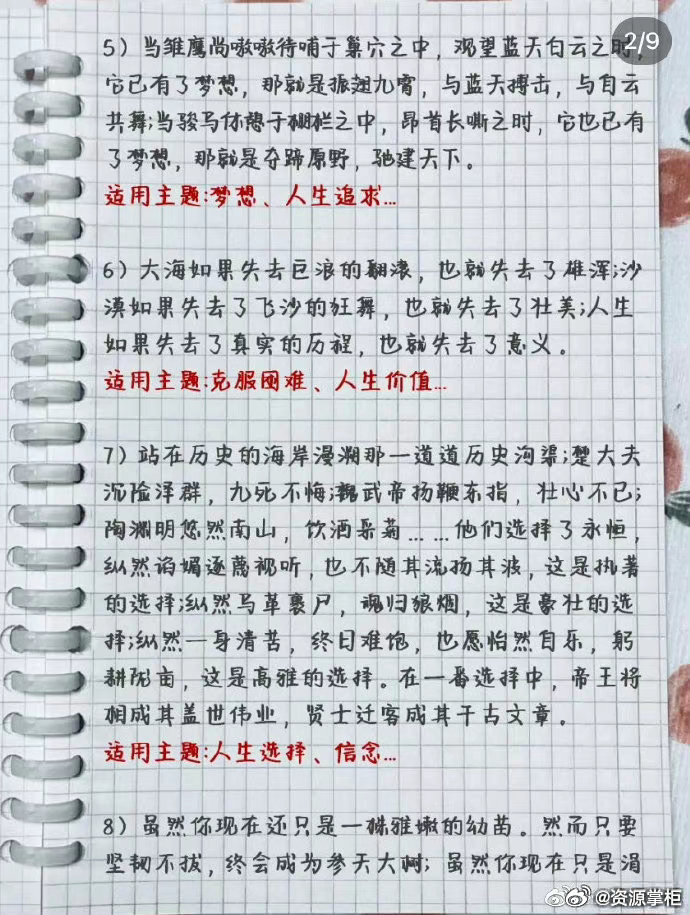 2/9
5）当雏鹰尚嗷嗷待哺于巢穴之中，观望蓝天白云之时，
它已有了梦想，那就是振翅九霄，与蓝天搏击，与白云
共舞;当骏马休憩于棚栏之中，昂首长嘶之时，它也已有
了梦想，那就是夺蹄原野，驰建天下。
适用主题:梦想、人生追求...
6）大海如果失去巨浪的翻滚，也就失去了雄浑;沙
漠如果失去了飞沙的狂舞，也就失去了壮美;人生
如果失去了真实的历程，也就失去了意义。
适用主题:克服困难、人生价值...
7）站在历史的海岸漫溯那一道道历史沟渠;楚大夫
沉险泽群，九死不悔;魏武帝扬鞭东指，壮心不已;
陶渊明悠然南山，饮酒采菊……他们选择了永恒，
纵然谄媚逐蔑视听，也不随其流扬其波，这是执著
的选择;纵然马革裹尸，魂归狼烟，这是豪壮的选
择;纵然一身清苦，终日难饱，也愿怡然自乐，躬
耕陇亩，这是高雅的选择。在一番选择中，帝王将
相成其盖世伟业，贤士迁客成其千古文章。
适用主题:人生选择、信念...
8）虽然你现在还只是一株雅嫩的幼苗。然而只要
坚韧不拔，终会成为参天大树；虽然你现在只是涓
@资源掌柜